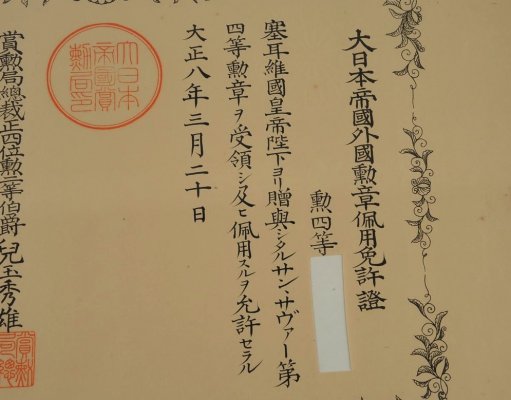 大日本帝國外國勲章佩用免許證
勲四等
塞耳維國皇帝陛下ヨリ贈與シタルサン、サヴァー第
四等勲章ヲ受領シ及ヒ佩用スルヲ允許セラル
大正八年三月二十日
大日本帝國賞勲局印
賞勲局總裁正四位勲二等伯爵兒玉秀雄